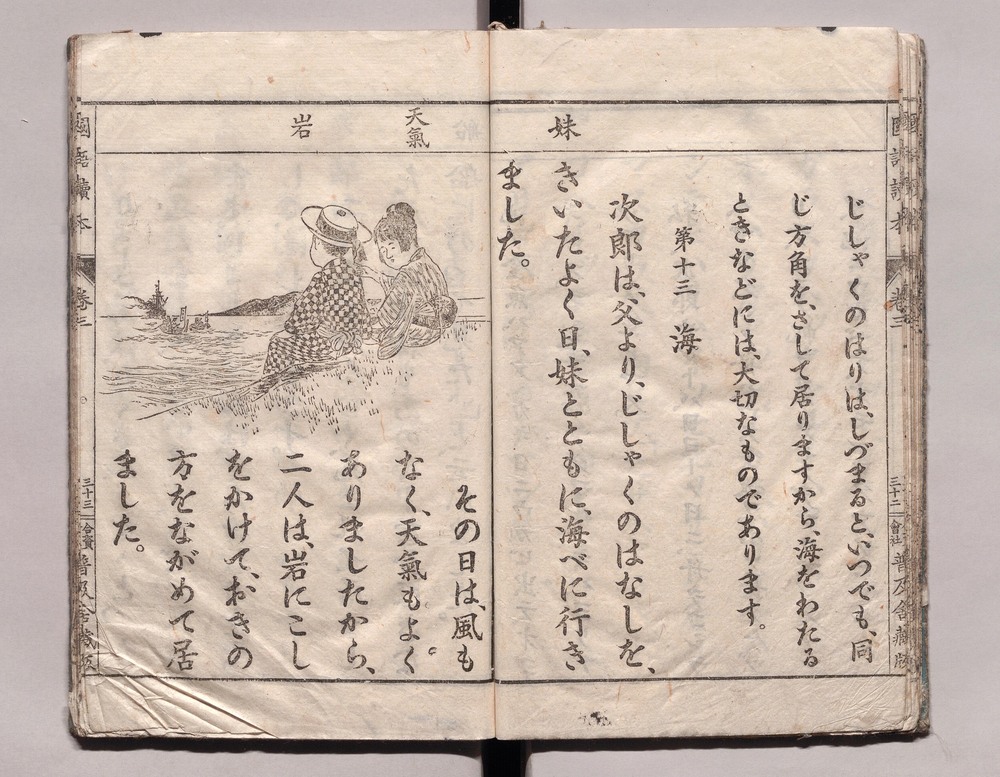 國語讀本 巻三 三十二 會社 普及舍藏版
じしゃくのはりは、しづまると、いつでも、同
じ方角を、さして居りますから、海をわたる
ときなどには、大切なものであります。
第十三 海
次郎は、父より、じしゃくのはなしを、
妹
きいたよく日、妹とともに、海べに行き
ました。
その日は、風も
天氣
なく、天氣もよく
ありましたから、
岩
二人は、岩にこし
をかけて、おきの
方をながめて居
ました。
國語讀本 巻三 三十三 合資 普及舍藏版